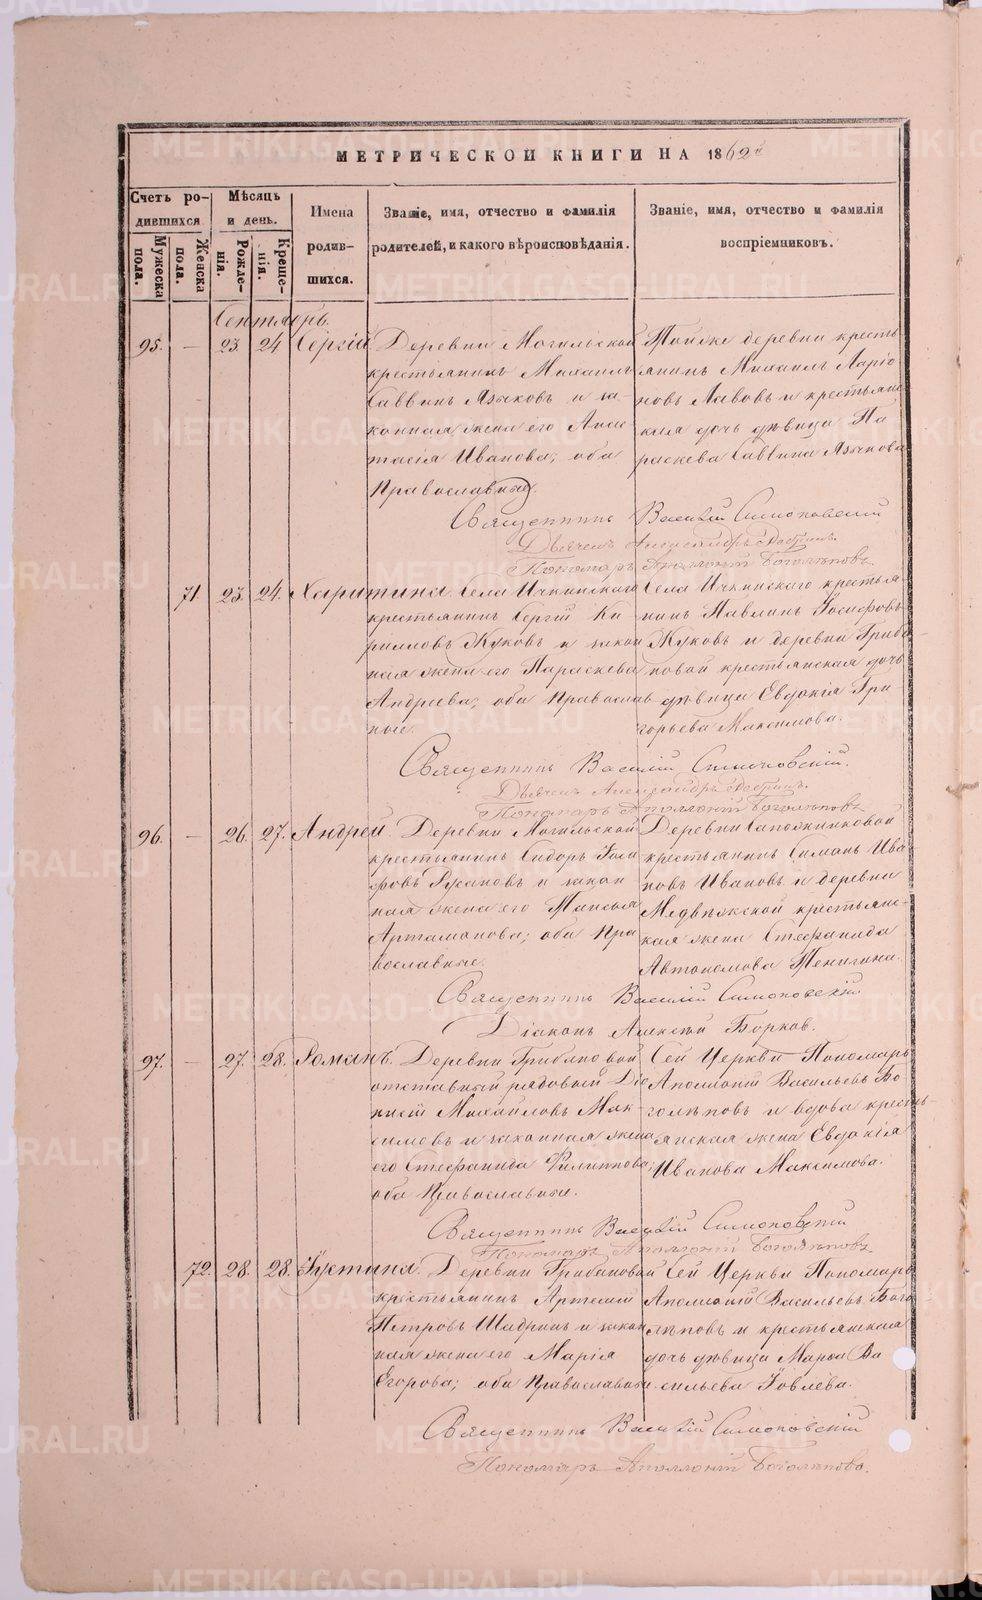 МЕТРИЧЕСКОЙ КНИГИ НА 1862й
Счетъ ро-
дившихся
Мѣсяцъ
и день.
Имена
родив-
шихся.
Званіе, имя, отчество и фамилія
родителей, и какого вѣроисповѣданія.
Званіе, имя, отчество и фамилія
воспріемниковъ.
Мужеска
пола.
Женска
пола.
Рожде-
нія.
Креще-
нія.
Сентябрь.
95. — 23. 24 Сергій
Деревни Могильской
крестьянинъ Михаилъ
Саввинъ Языковъ и за-
конная жена его Анас
тасія Иванова; оба
Православные.
деревни кресть
янинъ Михаилъ Ларіо
новъ Львовъ и крестьянс
кая дочь дѣвица Па
раскева Саввина Язычкова
Священникъ Василій Симоновскій
Дьячекъ Александръ
Пономарь Аполлоній Боголѣповъ
71. 23. 24. Харитина.
Села Ичкинскаго
крестьянинъ Сергій Ки
рилловъ Жуковъ и закон
ная жена его Параскева
Андреева; оба Православ
ные.
Села Ичкинскаго крестья
нинъ Павлинъ Іосифовъ
Жуковъ и деревни Гриба
новой крестьянская дочь
дѣвица Евдокія Гри-
горьева Максимова.
Священникъ Василій Симоновскій.
Дьячекъ Александръ
Пономарь Аполлоній Боголѣповъ
96. — 26. 27. Андрей.
Деревни Могильской
крестьянинъ Сидоръ Іоси
фовъ Русановъ и закон
ная жена его Таисья
Артамонова; оба Пра
вославные.
Деревни Сапожниковой
крестьянинъ Симонъ Ива
новъ Ивановъ и деревни
Медвѣжской крестьянс-
кая жена Стефанида
Автономова Тенигина.
Священникъ Василій Симоновскій
Діаконъ Алексѣй Борков.
97. — 27. 28. Романъ.
Деревни Грибановой
отставный рядовый Діо
нисій Михайловъ Мак-
симовъ и законная жена
его Стефанида Филиппова;
оба Православные.
Сей Церкви Пономарь
Аполлоній Васильевъ Бо-
голѣповъ и вдова кресть-
янская жена Евдокія
Иванова Максимова.
Священникъ Василій Симоновскій
Пономарь Аполлоній Боголѣповъ
72. 28. 28. Іустина.
Деревни Грибановой
крестьянинъ Артемій
Петровъ Шадринъ и закон
ная жена его Марія
Егорова; оба Православные
Сей Церкви Пономарь
Аполлоній Васильевъ Бого
лѣповъ и крестьянская
дочь дѣвица Марья Ва
сильева Іовлева.
Священникъ Василій Симоновскій
Пономарь Аполлоній Боголѣповъ.
METRIKI.GASO-URAL.RU